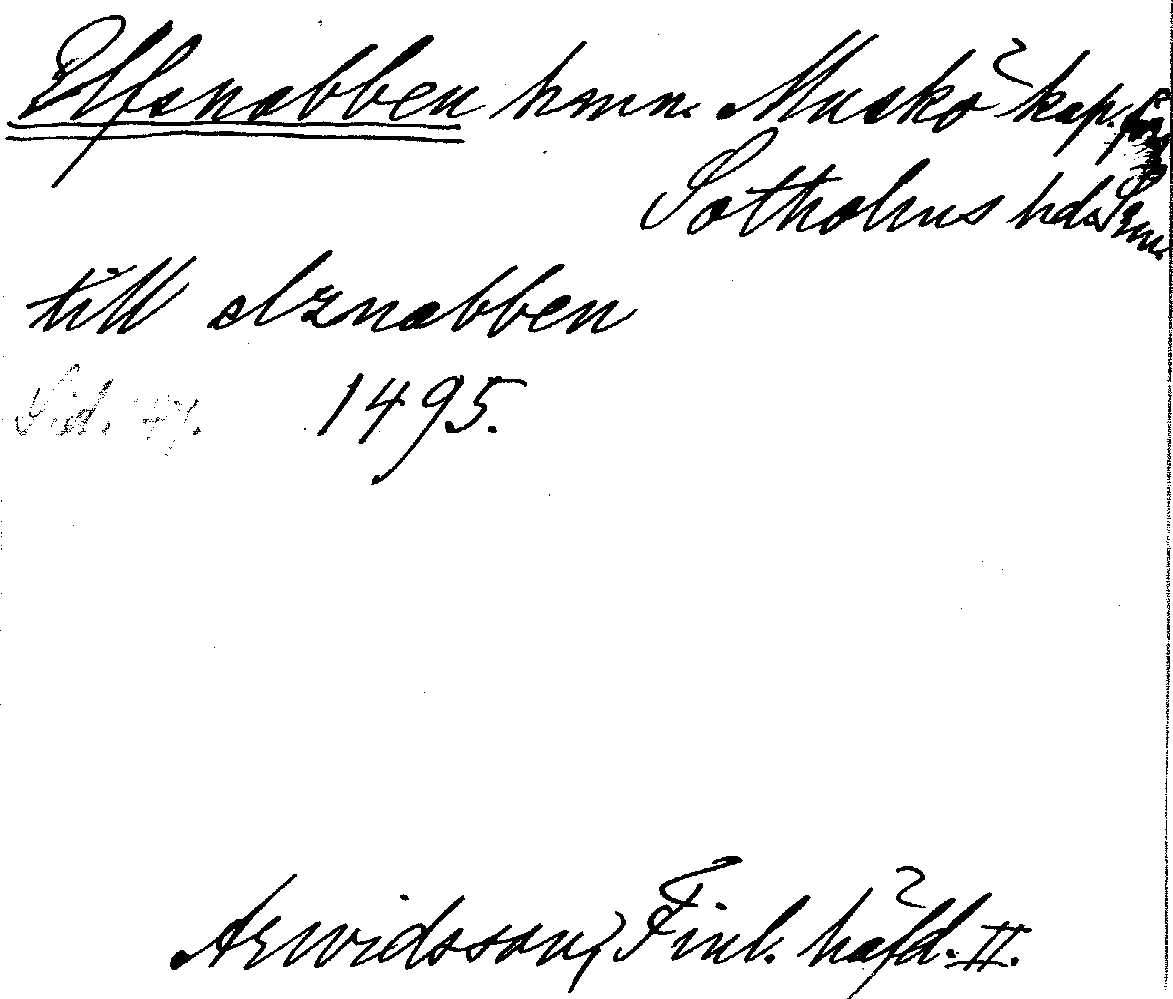 Elfsnabben hmn. Muskö kap.förs
Sotholms hd. Sm.
till elznabben
Sid. 47. 1495.
Arwidsson, Finl. häfd. II.